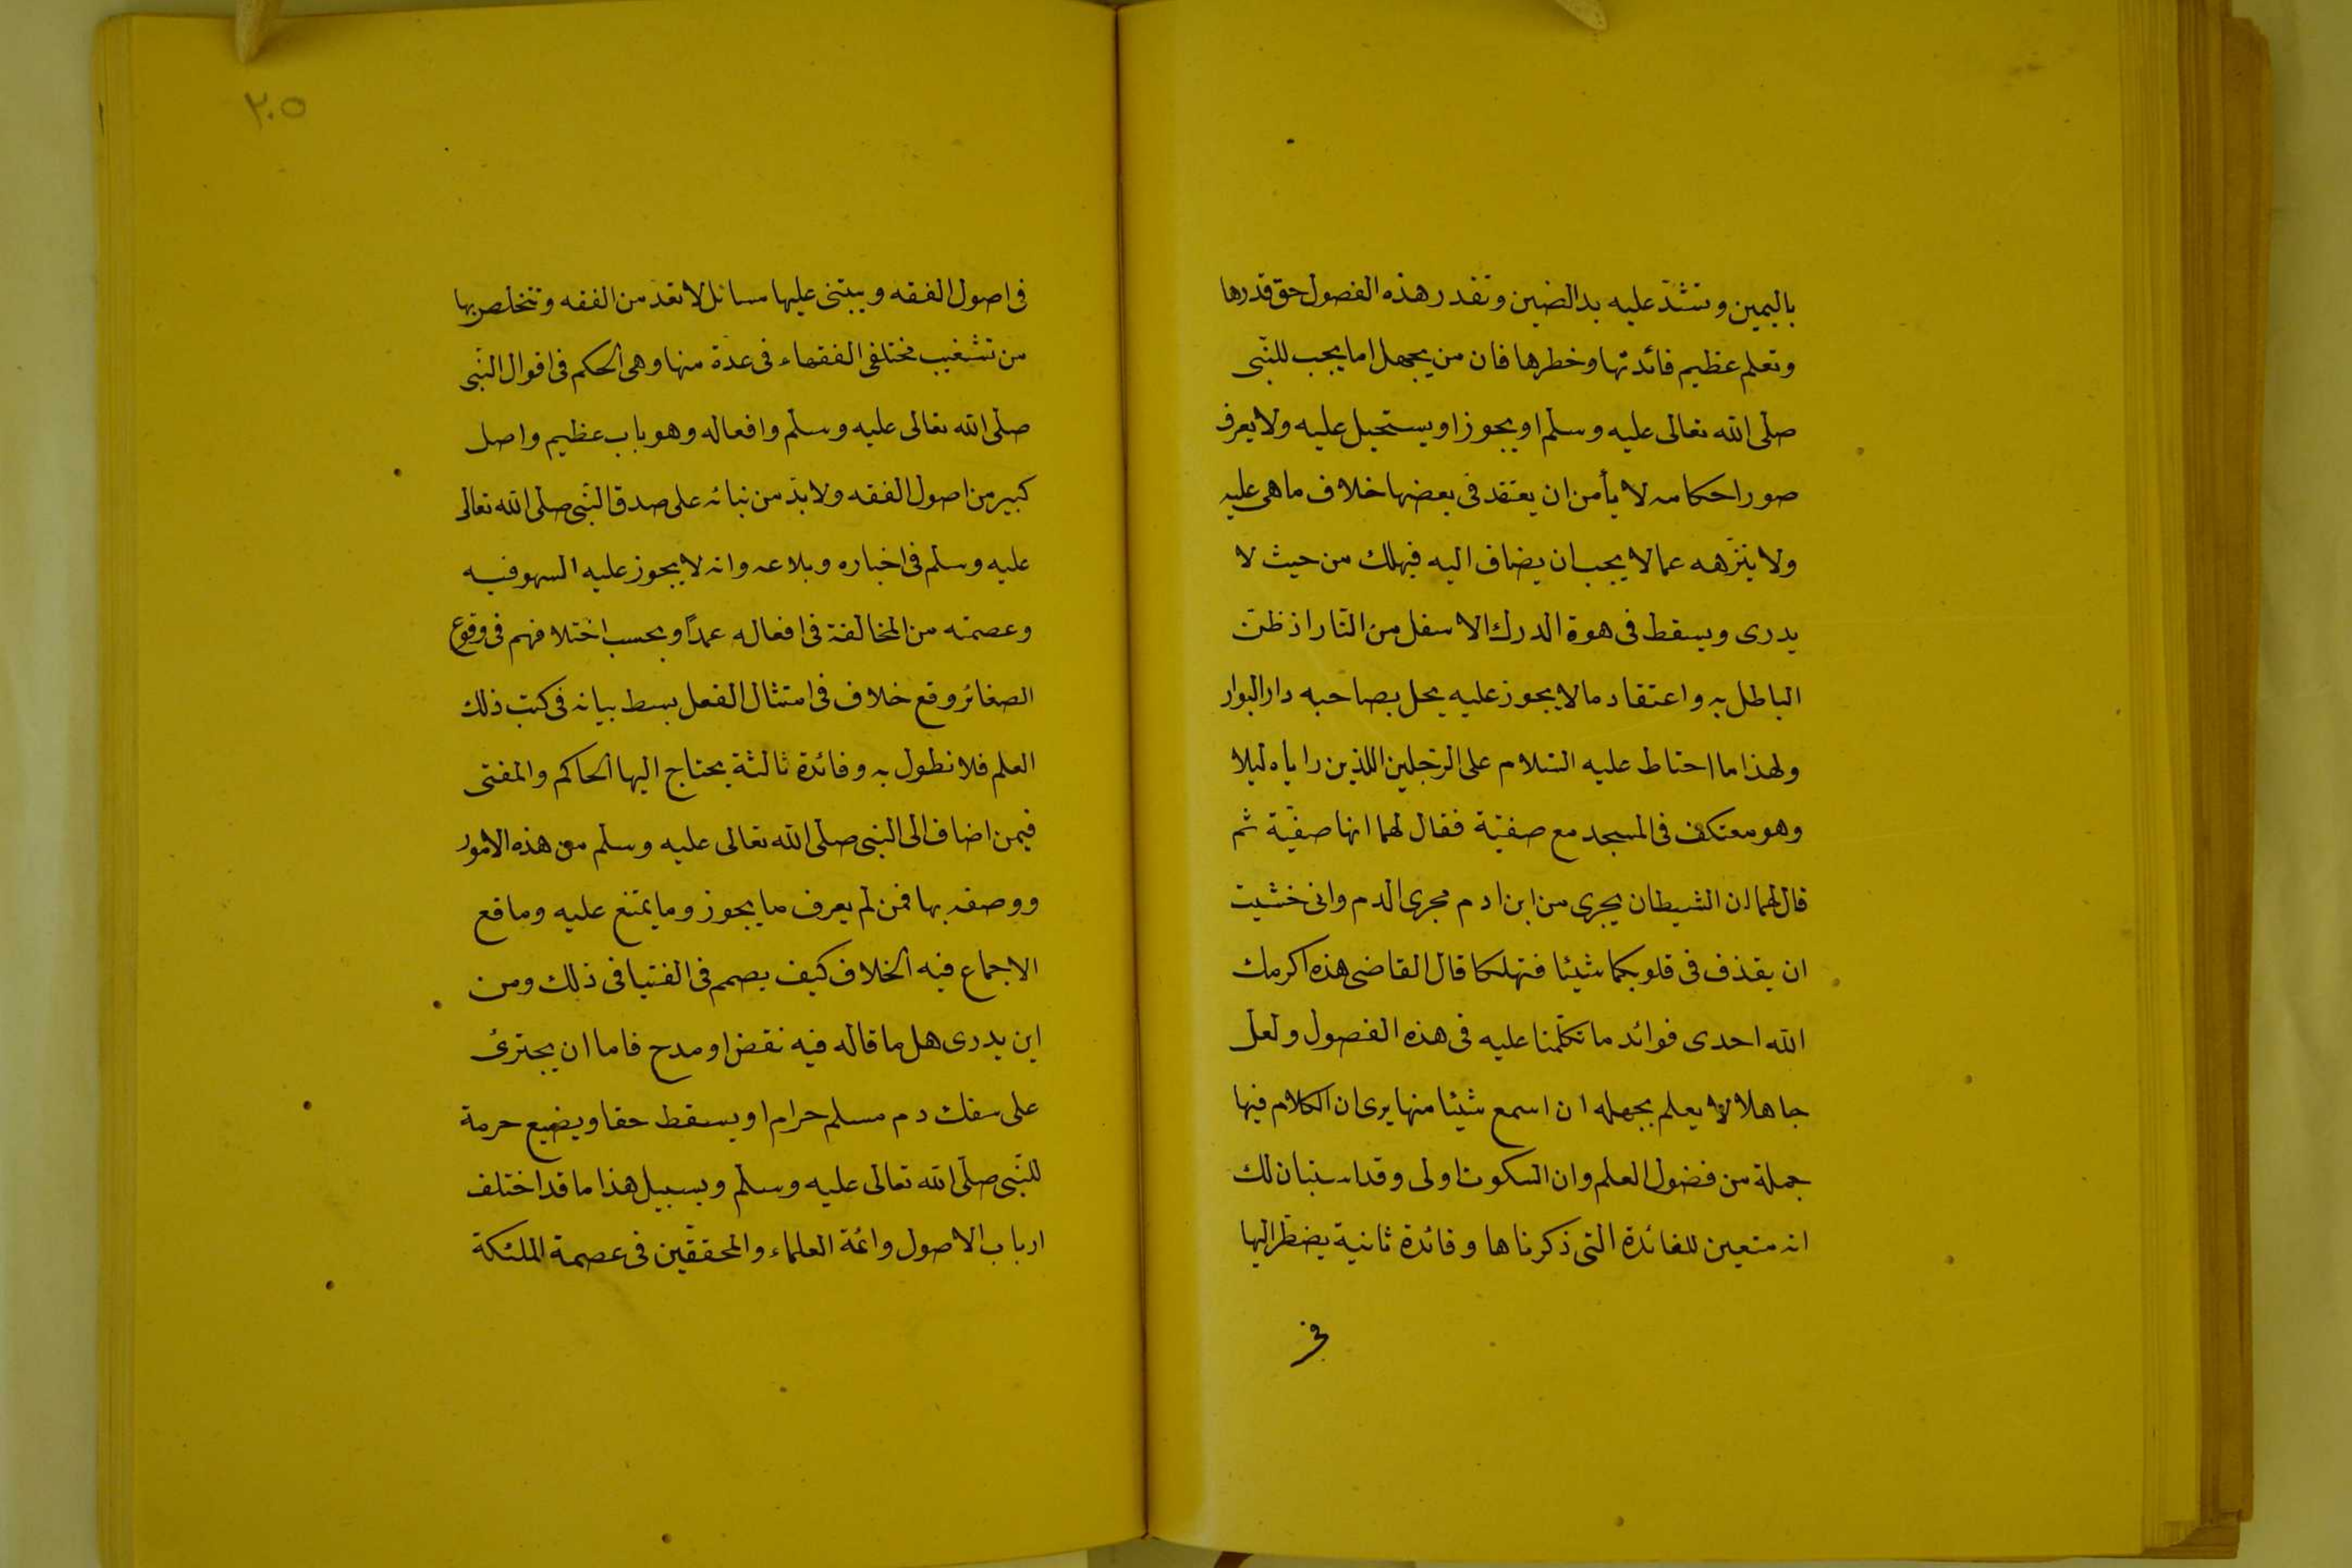 باليمين وتشدّ عليه يد الضنين وتقدر هذه الفصول حق قدرها
وتعلم عظيم فائدتها وخطرها فان من يجهل اما يجب للنّبى
صلى الله تعالى عليه وسلم او يجوز او يستحيل عليه ولا يعرف
صور احكامه لا يأمن ان يعتقد فى بعضها خلاف ما هى عليه
ولا ينزّهه عما لا يجب ان يضاف اليه فيهلك من حيث لا
يدرى ويسقط فى هوة الدرك الاسفل من النّار اذ ظنّ
الباطل به واعتقاد ما لا يجوز عليه يحل بصاحبه دار البوار
ولهذا ما احتاط عليه السّلام على الرّجلين اللذين راياه ليلا
وهو معتكف فى المسجد مع صفيّة فقال لهما انها صفيّة ثم
قال لهما ان الشيطان يجرى من ابن ادم مجرى الدم وانى خشيت
ان يقذف فى قلوبكما شيئا فتهلكا قال القاضى هذه اكرمك
الله احدى فوائد ما تكلّمنا عليه فى هذه الفصول ولعل
جاهلا لا يعلم بجهله ان اسمع شيئا منها يرى ان الكلام فيها
جملة من فضول العلم وان السكوت اولى وقد استبان لك
انه متعين للفائدة التى ذكرناها وفائدة ثانية يضطرّ اليها
فى
٢٠٥
فى اصول الفقه ويبتنى عليها مسائل لا تعد من الفقه وتتخلص بها
من تشغيب مختلفى الفقهاء فى عدة منها وهى الحكم فى اقوال النّبى
صلّى الله تعالى عليه وسلّم وافعاله وهو باب عظيم واصل
كبير من اصول الفقه ولا بدّ من بنائه على صدق النّبى صلى الله تعالى
عليه وسلم فى اخباره وبلاعه وانه لا يجوز عليه السهو فيه
وعصمته من المخالفة فى افعاله عمدًا وبحسب اختلافهم فى وقوع
الصغائر وقع خلاف فى امتثال الفعل بسط بيانه فى كتب ذلك
العلم فلا نطول به وفائدة ثالثة يحتاج اليها الحاكم والمفتى
فيمن اضاف الى النبى صلى الله تعالى عليه وسلّم من هذه الامور
ووصفه بها فمن لم يعرف ما يجوز وما يمتنع عليه وما قع
الاجماع فيه الخلاف كيف يصمم فى الفتيا فى ذلك ومن
اين يدرى هل ما قاله فيه نقض او مدح فاما ان يجترئ
على سفك دم مسلم حرام او يسقط حقا ويضيع حرمة
للنّبى صلّى الله تعالى عليه وسلّم وبسبيل هذا ما قد اختلف
ارباب الاصول وائمة العلماء والمحققين فى عصمة الملئكة